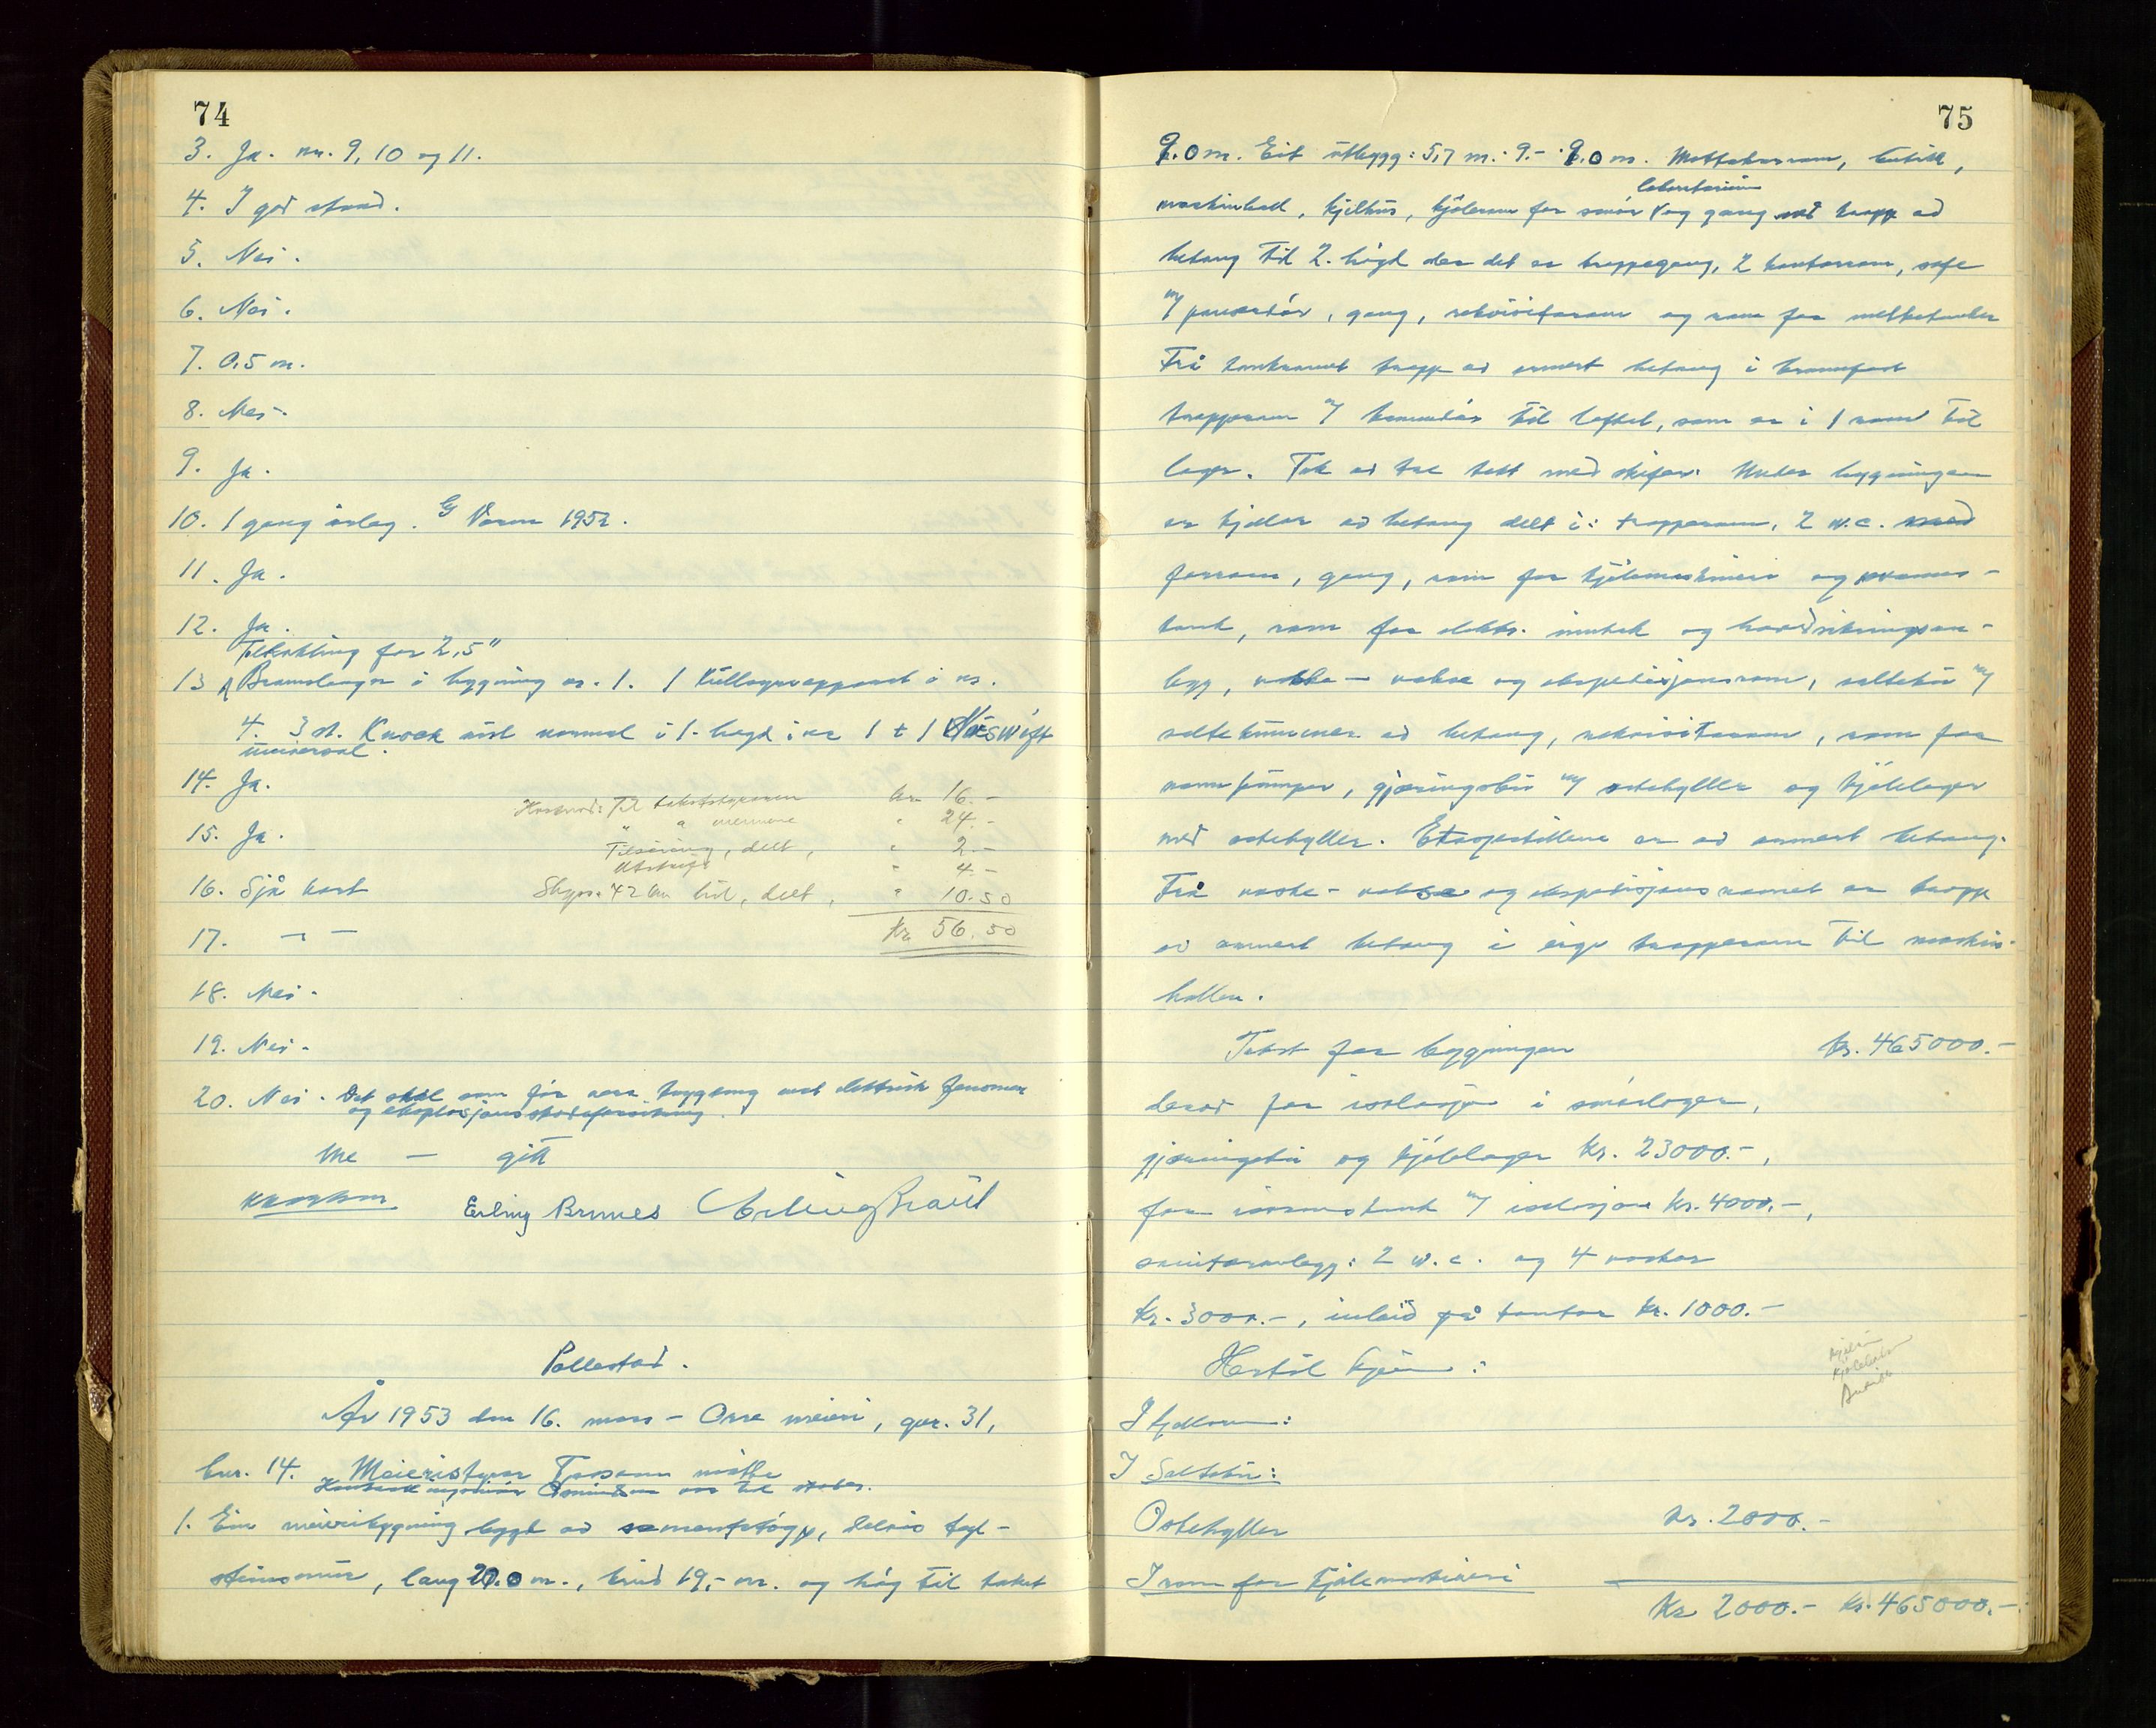 74
3. Ja. nr. 9, 10 og 11.
4. I god stand.
5. Nei.
6. Nei.
7. 0,5 m.
8. Nei.
9. Ja.
10. 1 gang årleg. G Varn 1952.
11. Ja.
12. Ja.
Tilkobling for 2,5"
13 Brannslanger i bygning nr. 1. 1 Kullsyreapparat i nr.
4. 3 st. Knock ut normal i 1. høgd i nr 1 + 1 Nu-Swift
universal.
14. Ja.
Kostnad: Til takststyraren kr. 16.-
" 2 mennene " 24.-
15. Ja.
Tilsåing, delt, " 2.-
Utskrift " 4.-
16. Sjå kart
Skyss 42 km bil, delt, " 10.50
kr 56.50
17. - " -
18. Nei.
19. Nei.
20. Nei. Det skal som før vera trygding mot elektrisk fenomen
og eksplosjonsskadeforsikring.
Me — gitt
Erling Brunes Erling Braut
Pollestad.
År 1953 den 16. mars - Orre meieri, gnr. 31,
bnr. 14. Meieristyrar møtte
1. Ein meieribygning bygd av sementstøyp, delvis tegl-
steinsmur, lang 20.0 m., breid 19,- m. og høg til taket
75
9.0 m. Eit utbygg: 5,7 m. · 9.- · 9.0 m. Mottakarrom, butikk,
laboratorium
maskinhall, kjelhus, kjølerom for smør og gang med trapp av
betong til 2. høgd der det er trappegang, 2 kontorrom, safe
m/ panserdør, gang, rekvisitarom og rom for
Frå kontoret trapp av armert betong i brannfast
trapperom m/ branndør til loftet, som er i 1 rom til
lager. Tak av tre tekt med skifer. Under bygningen
er kjellar av betong delt i: trapperom, 2 w.c. med
forrom, gang, rom for kjølemaskineri og
tank, rom for elektr. inntak og
legg, vaske- vakse og ekspedisjonsrom, saltebu m/
saltekummer av betong, rekvisitarom, rom for
vannpumper, gjæringsbu m/ ostehyller og kjølelager
med ostehyller. Etasjeskillene er av armert betong.
Frå vaske- vakse og ekspedisjonsromet er trapp
av armert betong i eige trapperom til maskin-
hallen.
Takst for bygningen kr. 465000.-
derav for isolasjon i smørlager,
gjæringsbu og kjølelager kr. 23000.-,
for isvanntank m/ isolasjon kr. 4000.-,
sanitæranlegg: 2 w.c. og 4 vasker
kr. 3000.-, innleid på kontor kr. 1000.-
Hertil kjem:
I kjellaren:
I Saltebu:
Ostehyller kr. 2000.-
I rom for kjølemaskineri
kr 2000.- kr. 465000.-